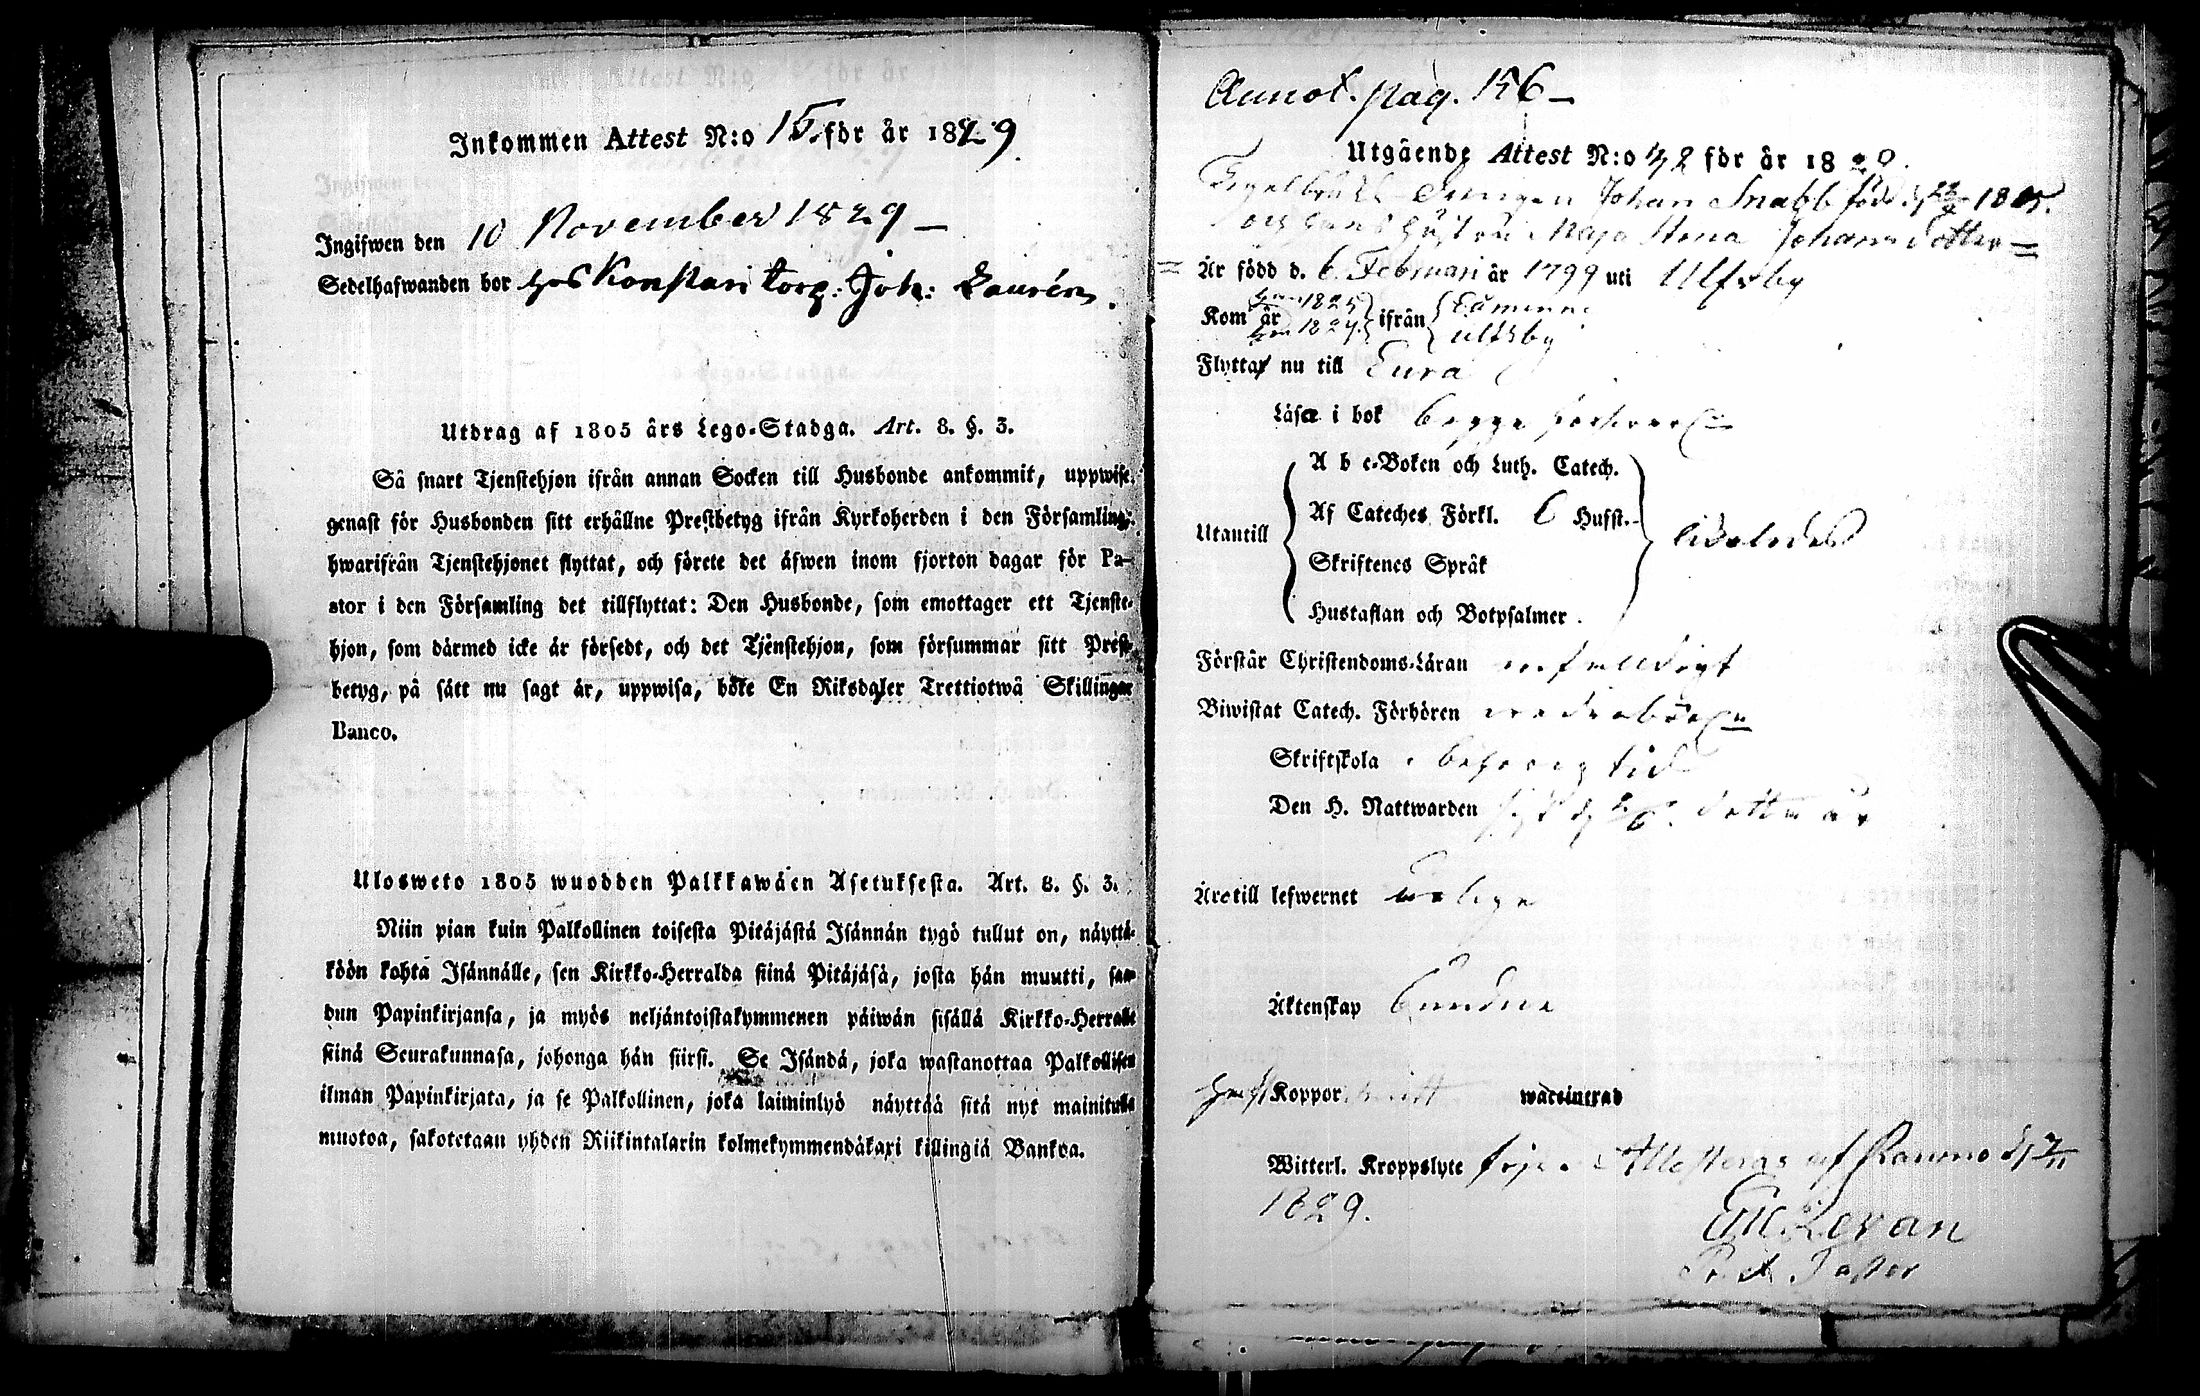 Inkommen Attest N:o 15 för år 1829.
Ingifwen den 10 November 1829 –
Sedelhafwanden bor hos Konstari torp: Joh: Laurén.
Utdrag af 1805 års Lego-Stadga. Art. 8. §. 3.
Så snart Tjenstehjon ifrån annan Socken till Husbonde ankommit, uppwise
genast för Husbonden sitt erhållne Prestbetyg ifrån Kyrkoherden i den Församling,
hwarifrån Tjenstehjonet flyttat, och förete det äfwen inom fjorton dagar för Pa-
stor i den Församling det tillflyttat: Den Husbonde, som emottager ett Tjenste-
hjon, som därmed icke är försedt, och det Tjenstehjon, som försummar sitt Prest-
betyg, på sätt nu sagt är, uppwisa, böte En Riksdaler Trettiotwå Skillingar
Banco.
Ulosweto 1805 wuodden Palkkawäen Asetuksesta. Art. 8. §. 3.
Niin pian kuin Palkollinen toisesta Pitäjästä Isännän tygö tullut on, näyttä-
köön kohta Isännälle, sen Kirkko-Herralda siinä Pitäjäsä, josta hän muutti, saa-
dun Papinkirjansa, ja myös neljäntoistakymmenen päiwän sisällä Kirkko-Herralle
siinä Seurakunnasa, johonga hän siirsi. Se Isändä, joka wastanottaa Palkollisen
ilman Papinkirjata, ja se Palkollinen, joka laiminlyö näyttää sitä nyt mainitulla
muotoa, sakotetaan yhden Riikintalarin kolmekymmendäkaxi killingiä Bankoa.
Annot. pag. 156 –
Utgående Attest N:o 42 för år 18
Johan Snabb född d. 1805.
och hans hustru Maja Stina Johansdotter
Är född d. 6 Februari år 1799 uti Ulfsby
Kom år han 1825 hon 1827 ifrån Eurминne Ulfsby
Flytta nu till Eura
Läsa i bok begge försvarl.
A b c-Boken och Luth. Catech.
Utantill Af Cateches Förkl. 6 Hufst.
Skriftenes Språk
Hustaflan och Botpsalmer
Förstår Christendoms-Läran enfaldigt
Biwistat Catech. Förhören
Skriftskola behörig tid
Den H. Nattwarden detta år
Äro till lefwernet ärlige
Äktenskap bundne
Haft Koppor waccinerad
Witterl. Kroppslyte Attesteras af Raumo d. 7/11
1829.
Levan
Past